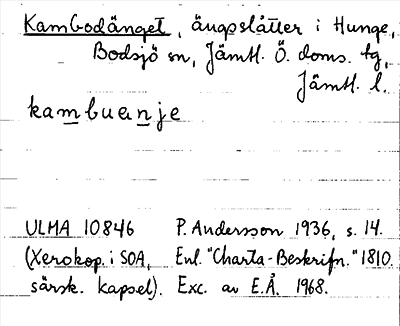 Kambodänget, ängsslåtter i Hunge,
Bodsjö sn, Jämtl. Ö. doms. tg,
Jämtl. l.
kambuenje
ULMA 10846 P. Andersson 1936, s. 14.
(Xerokop. i SOA, Enl. "Charta-Beskrifn." 1810.
särsk. kapsel). Exc. av E.Å. 1968.